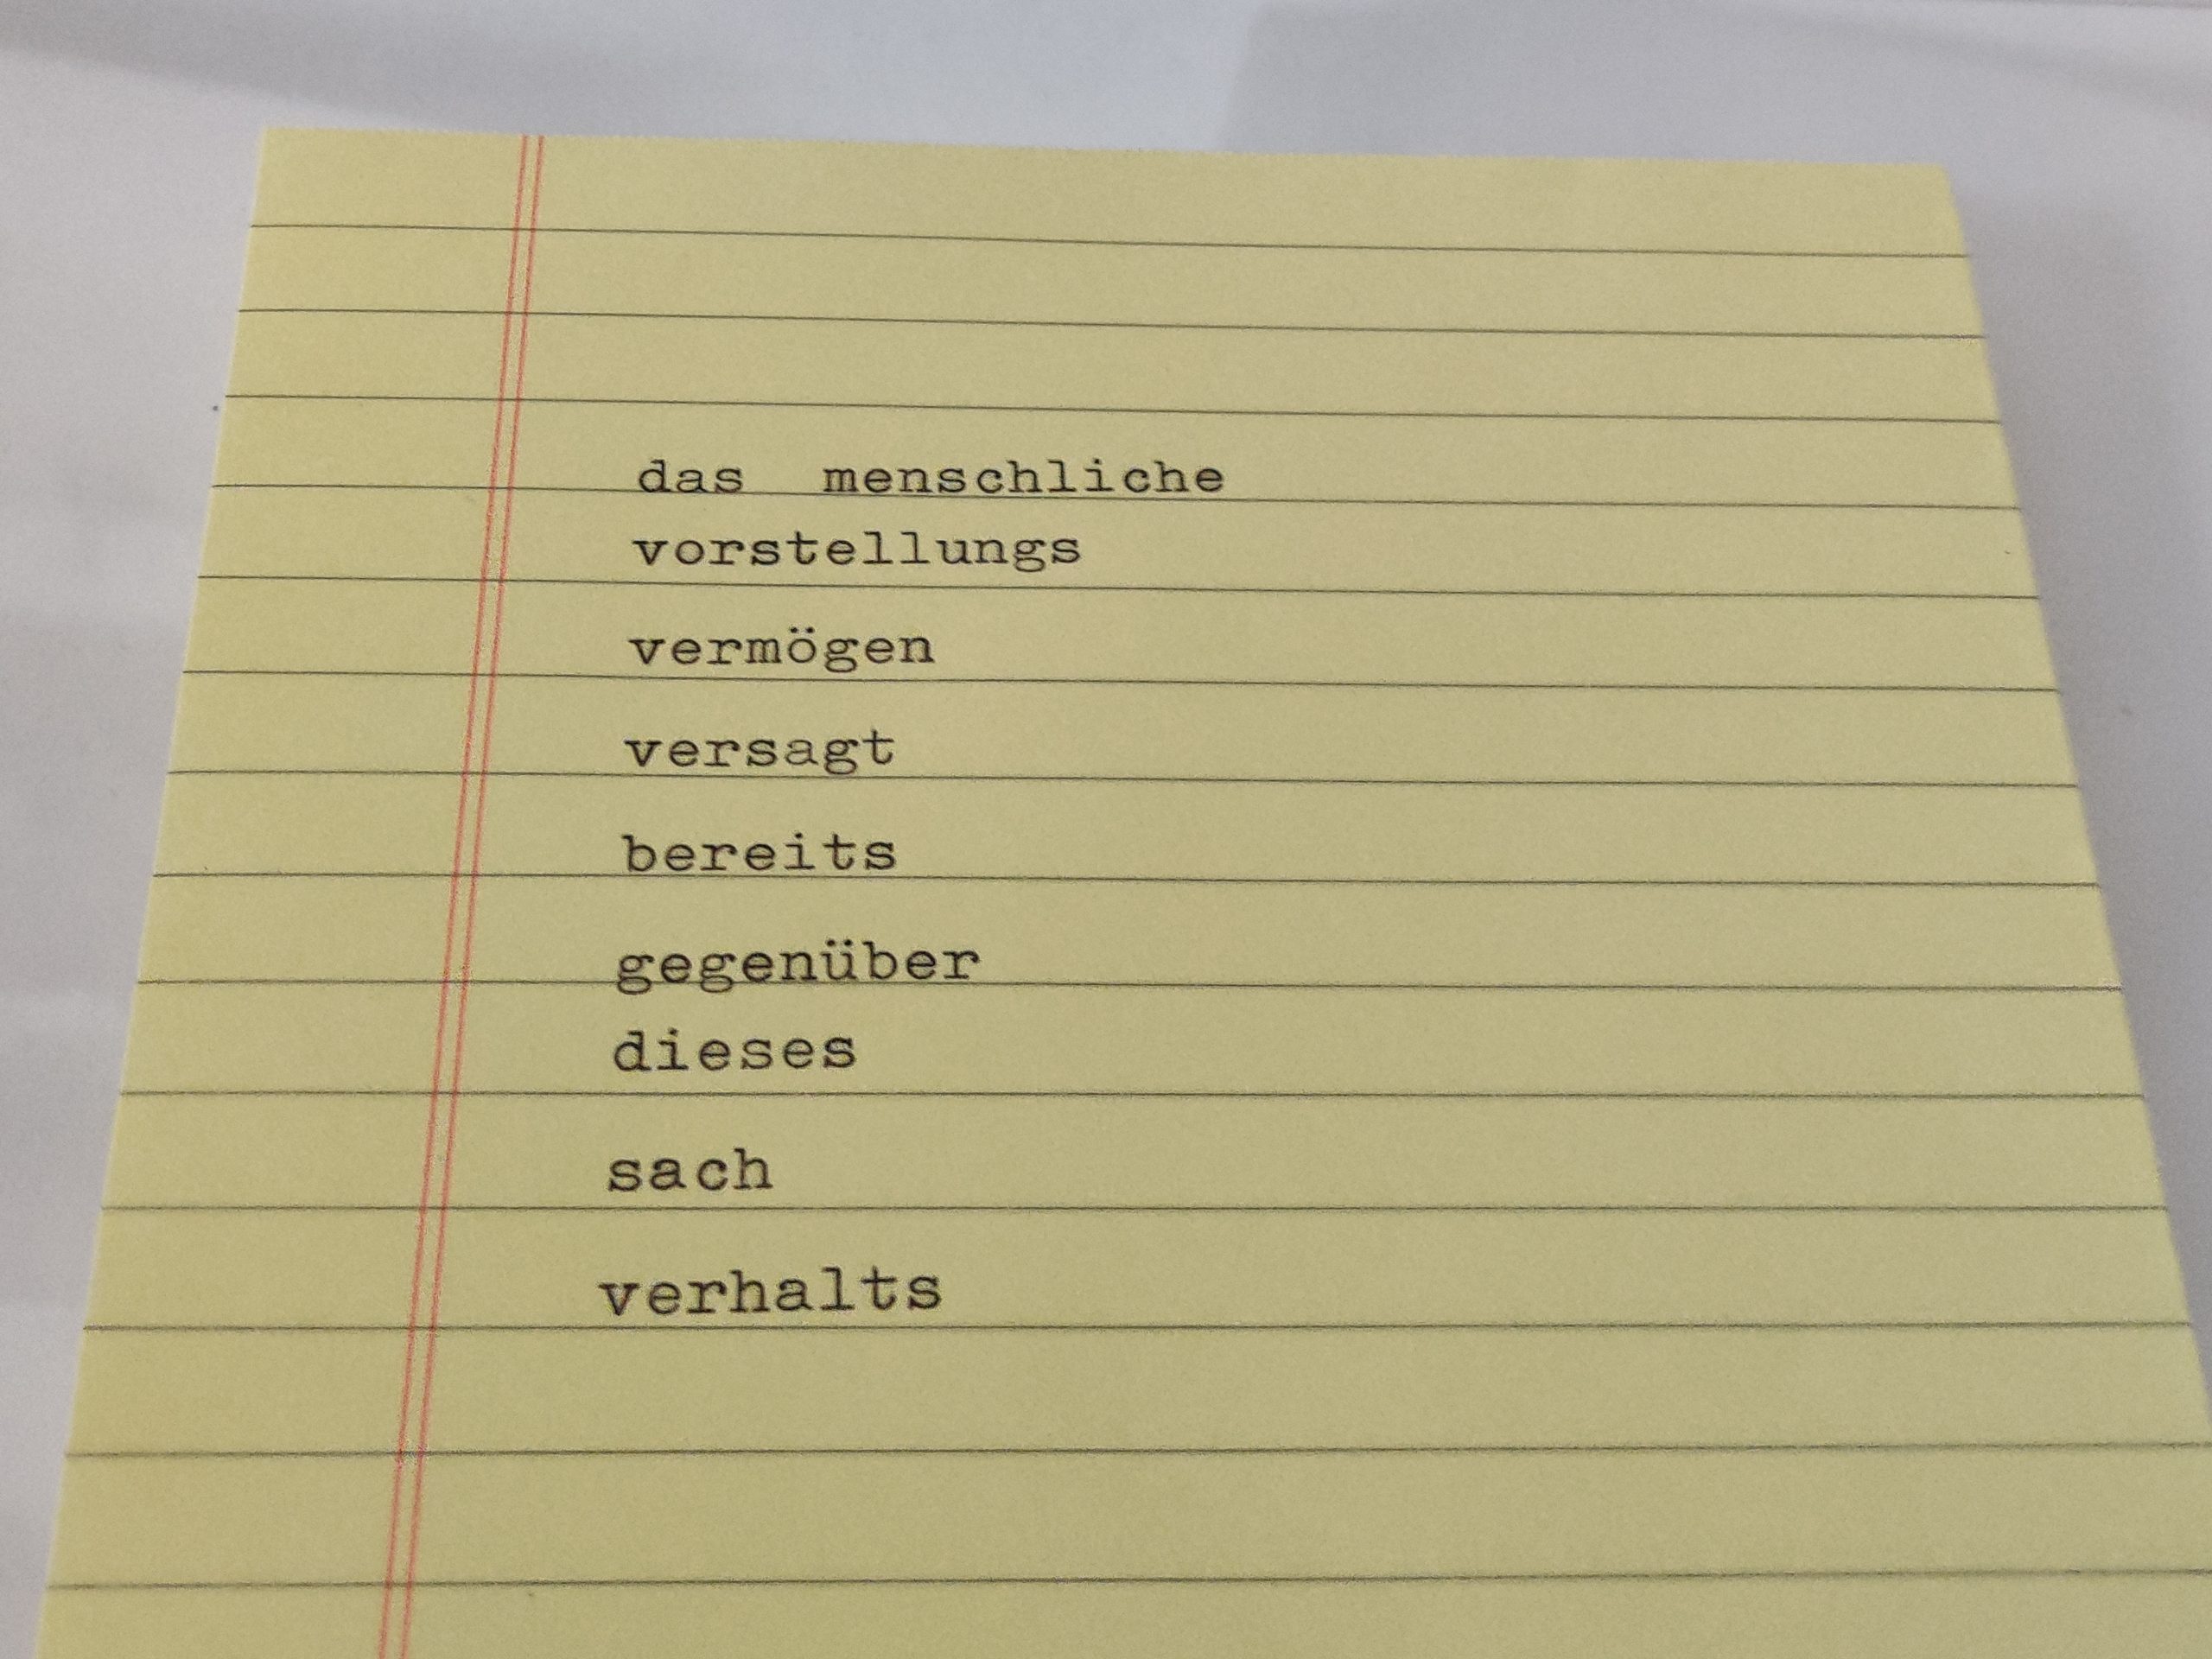 das menschliche
vorstellungs
vermögen
versagt
bereits
gegenüber
dieses
sach
verhalts